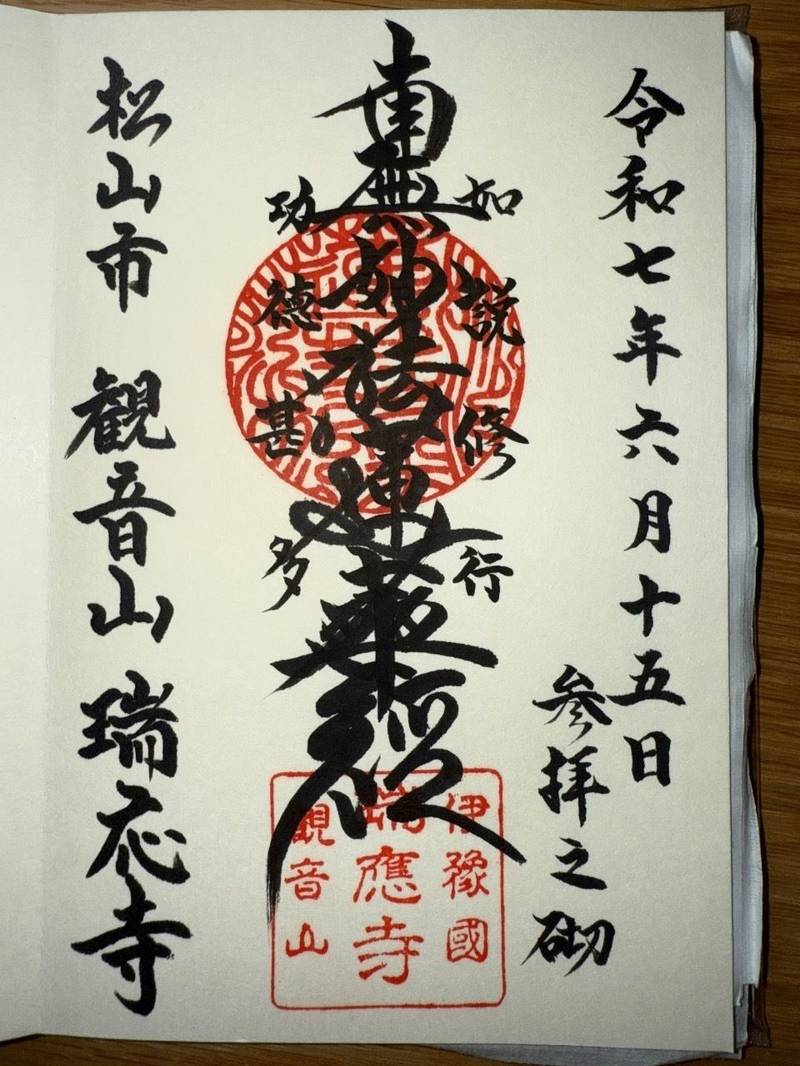 令和七年六月十五日
参拝之砌
如説修行
南無妙法蓮華経
功徳甚多
伊豫國
瑞應寺
観音山
松山市 観音山 瑞応寺